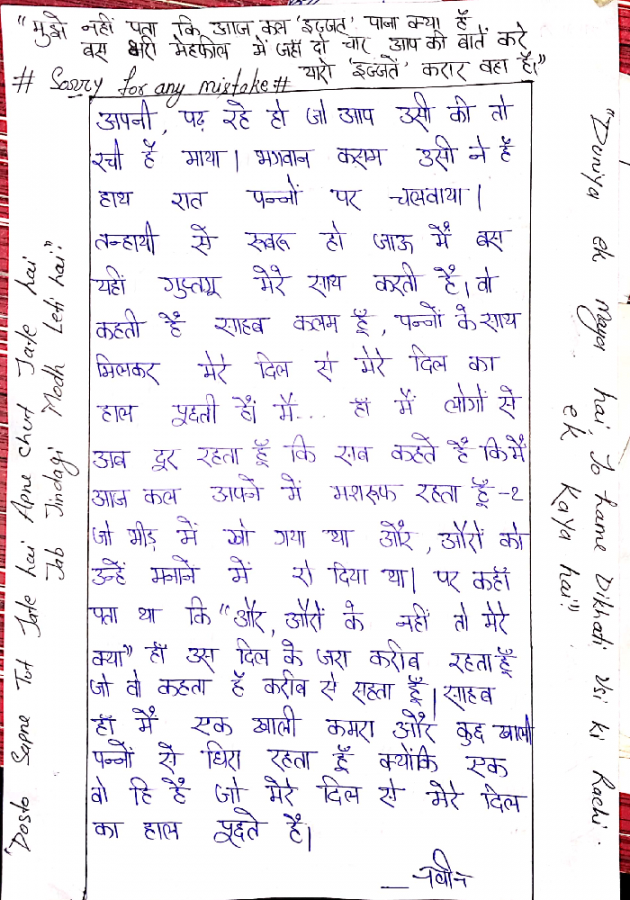 "मुझे नहीं पता कि आज कल 'इज्जत' पाना क्या है
बस भरी मेहफील में जहाँ दो चार आप की बातें करे
यारो 'इज्जतें' करार वहा है।"
# Sorry for any mistake #
अपनी, पढ़ रहे हो जो आप उसी की तो
रची है माया। भगवान कसम उसी ने है
हाथ रात पन्नों पर चलवाया।
तन्हायी से रुबरू हो जाऊ मैं बस
यहीं गुफ्तगू मेरे साथ करती है। वो
कहती है साहब कलम हूँ, पन्नों के साथ
मिलकर मेरे दिल से मेरे दिल का
हाल पूछती हाँ मैं... हाँ मैं लोगों से
अब दूर रहता हूँ कि सब कहते है कि मैं
आज कल अपने में मशरूफ रहता हूँ -2
जो भीड़ में खो गया था और, औरों को
उन्हें मनाने में रो दिया था। पर कहाँ
पता था कि "और, औरों के नहीं तो मेरे
क्या" हाँ उस दिल के जरा करीब रहता हूँ
जो वो कहता है करीब से सहता हूँ। साहब
हाँ मैं एक खाली कमरा और कुछ खाली
पन्नों से घिरा रहता हूँ क्योंकि एक
वो हि है जो मेरे दिल से मेरे दिल
का हाल पूछते है।
"Dosto Sapne Tut Jate hai Apne chut Jate hai
Jab Jindagi Modh Leti hai."
"Duniya ek maya hai, Jo hame Dikhati Usi ki Rachi
ek Kaya hai."